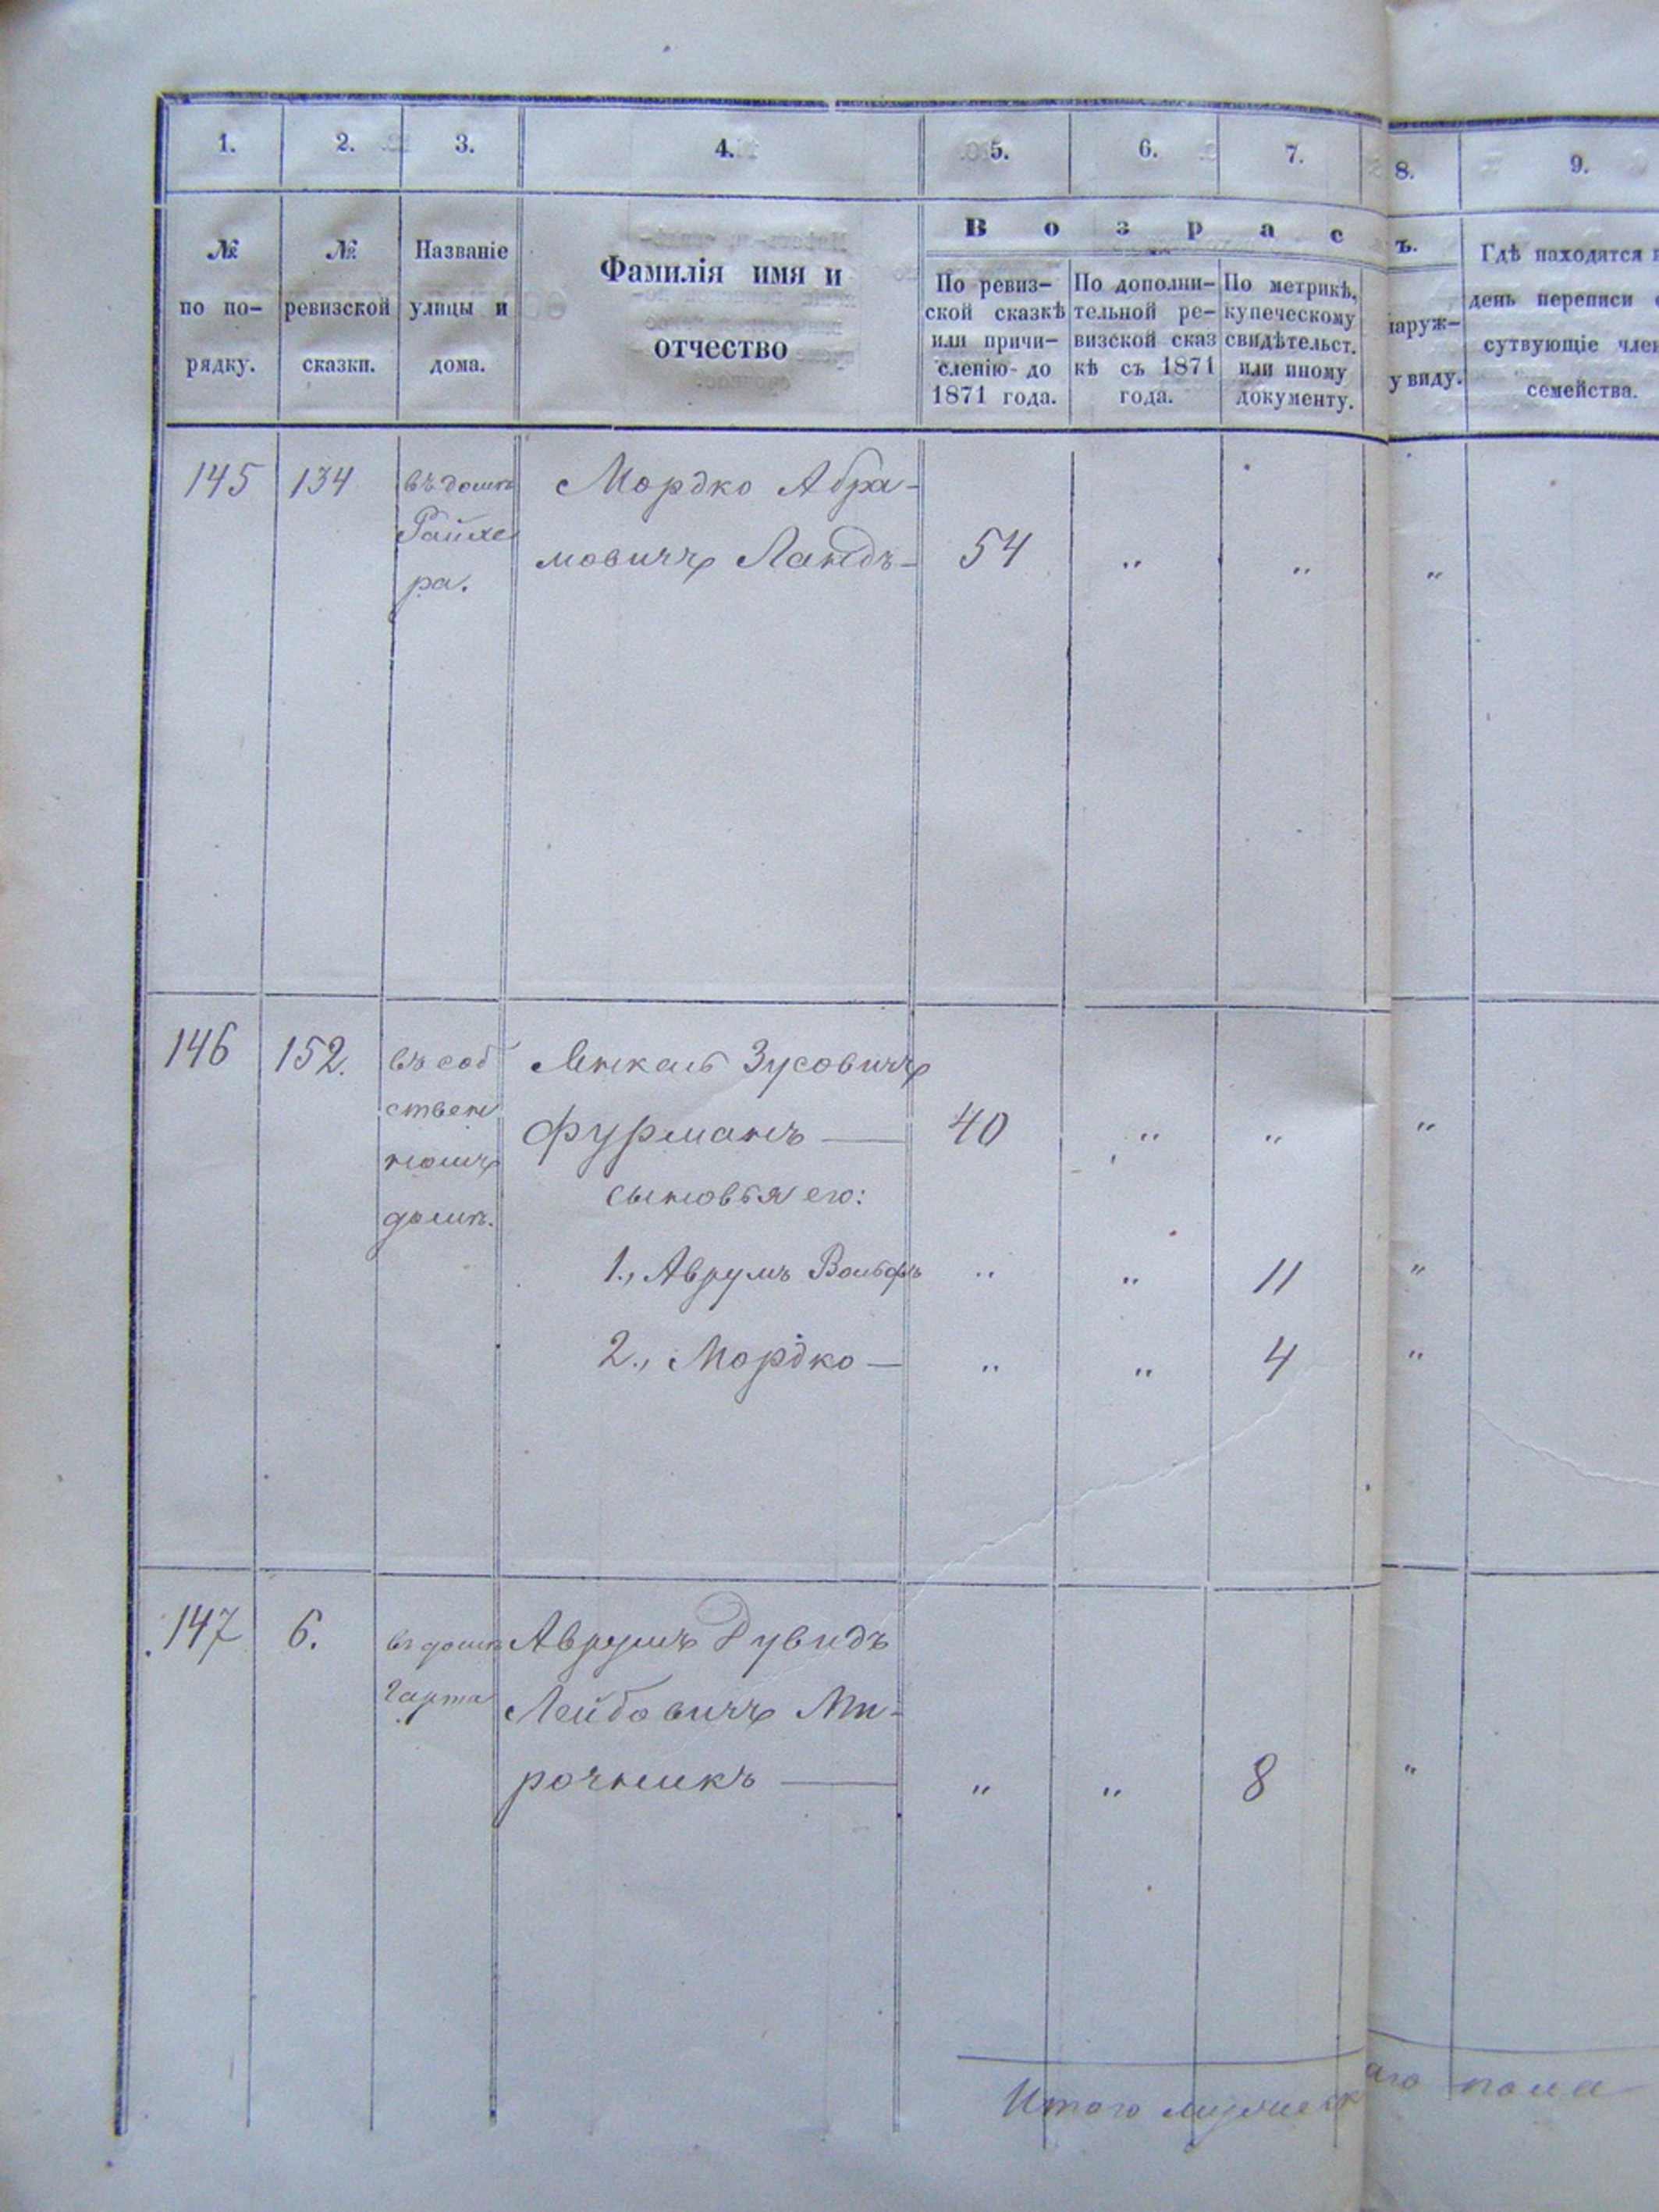 1. 2. 3. 4. 5. 6. 7. 8. 9.
№ по по-рядку.
№ ревизской сказки.
Названіе улицы и дома.
Фамилія имя и отчество
В о з р а с ъ.
По ревиз-
ской сказкѣ
или причи-
сленію до
1871 года.
По дополни-
тельной ре-
визской сказ
кѣ съ 1871
года.
По метрикѣ,
купеческому
свидѣтельст.
или иному
документу.
наруж-
у виду.
Гдѣ находятся
день переписи
сутвующіе член
семейства.
145 134 въ домѣ Мордко Абра-
Райхе мовичъ Ландъ 54 " " "
ра.
146 152. въ соб Зусовичъ
ствен Фурманъ — 40 " " "
номъ сыновья его:
домѣ. 1., Аврумъ Вольфъ " " 11 "
2., Мордко — " " 4 "
147 6. въ домѣ Аврумъ Дувидъ
Гарта Лейбовичъ Ми-
рочникъ — " " 8 "
Итого мужеск аго пола